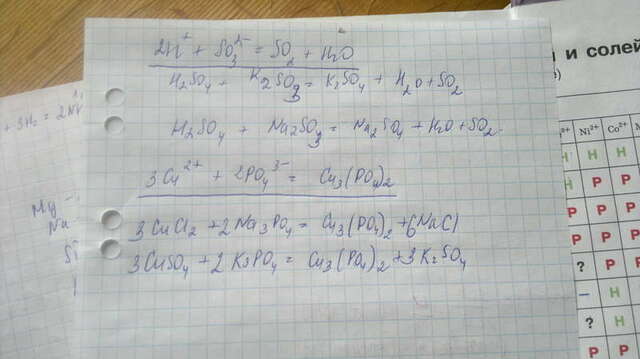 2H⁺ + SO₃²⁻ = SO₂ + H₂O
H₂SO₄ + K₂SO₃ = K₂SO₄ + H₂O + SO₂
H₂SO₄ + Na₂SO₃ = Na₂SO₄ + H₂O + SO₂
3Cu²⁺ + 2PO₄³⁻ = Cu₃(PO₄)₂
3CuCl₂ + 2Na₃PO₄ = Cu₃(PO₄)₂ + 6NaCl
3CuSO₄ + 2K₃PO₄ = Cu₃(PO₄)₂ + 3K₂SO₄
и солей
Ni²⁺ Co²⁺
Н Н Н
Р Р
Р Р
Р Р
Р Р
? Р Р
– Н
? Н
Р Р
+ 3H₂ = 2N
Na